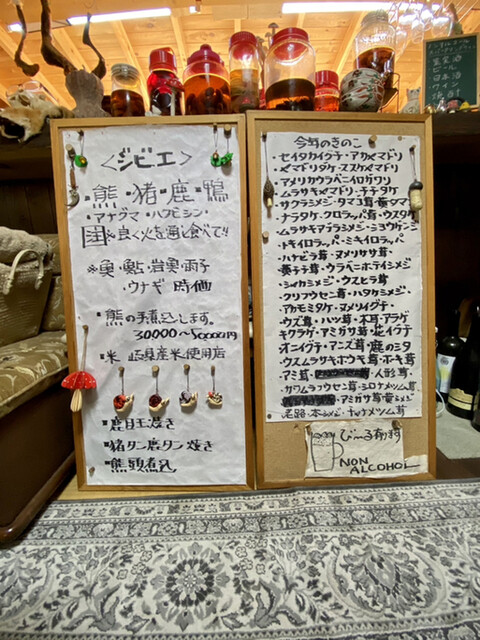 <ジビエ>
・熊・猪・鹿・鴨
・アナグマ・ハクビシン
注※良く火を通し食べて!!
※魚・鮎・岩魚・雨子
・ウナギ 時価
・熊の手煮込します。
30,000〜50000円
・米 岐阜県産米使用店
・鹿目玉焼き
・猪タン鹿タン焼き
・熊頭煮込
今年のきのこ
・セイタカイグチ・アカヤマドリ
・ヤマドリタケ・ススケヤマドリ
・アメリカウラベニイロガワリ
・ムラサキヤマドリ・チチタケ
・サクラシメジ・タマゴ茸・黄タマゴ
・ナラタケ・クロラッパ茸・ウスタケ
・ムラサキアブラシメジ・ショウゲンジ
・トキイロラッパ・ミキイロラッパ
・ハナビラ茸・ヌメリササ茸
・ウラベニホテイシメジ
・シャカシメジ・ウスヒラ茸
・クリフウセン茸・ハタケシメジ・
・アカモミタケ・ヌメリイグチ・
・ウズ茸・ハツ茸・木耳・アラゲ
キクラゲ・アミガサ茸・花イグチ
・オニイグチ・アンズ茸・鹿のシタ
・ウスムラサキホウキ茸・ホウキ茸
・アミ茸・人形茸
・カワムラフウセン茸・シロナメツム茸
・アミガサ茸・黄シメジ
・老路・本シメジ・チャナメツム茸
びーる有ります
NON
ALCOHOL
果実酒
ビール
日本酒
ワイン